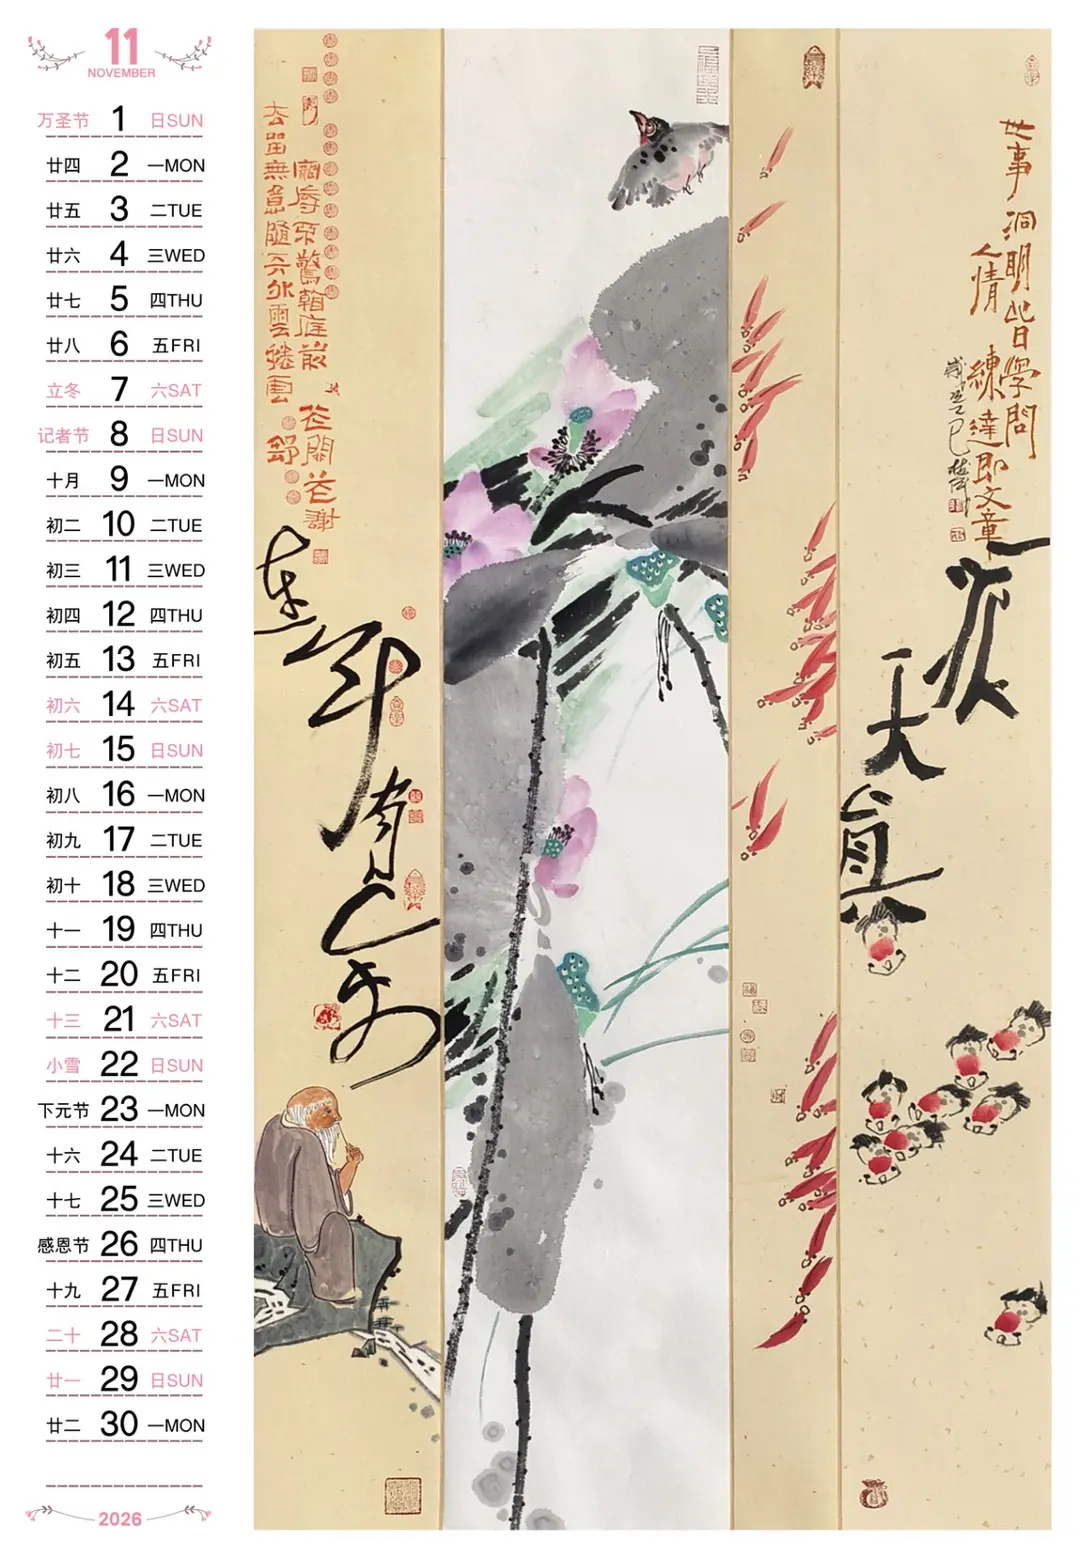 11
NOVEMBER
万圣节 1 日SUN
廿四 2 一MON
廿五 3 二TUE
廿六 4 三WED
廿七 5 四THU
廿八 6 五FRI
立冬 7 六SAT
记者节 8 日SUN
十月 9 一MON
初二 10 二TUE
初三 11 三WED
初四 12 四THU
初五 13 五FRI
初六 14 六SAT
初七 15 日SUN
初八 16 一MON
初九 17 二TUE
初十 18 三WED
十一 19 四THU
十二 20 五FRI
十三 21 六SAT
小雪 22 日SUN
下元节 23 一MON
十六 24 二TUE
十七 25 三WED
感恩节 26 四THU
十九 27 五FRI
二十 28 六SAT
廿一 29 日SUN
廿二 30 一MON
2026
寵辱不驚看庭前花開花謝
去留無意隨天外雲卷雲舒
連年有
世事洞明皆學問
人情練達即文章
天真